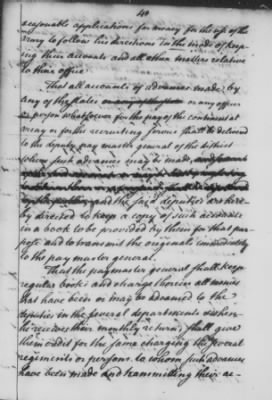 40
reasonable applications for money for the use of the
army to follow his directions in the mode of keep
ing their accounts and all other matters relative
to their office.
That all accounts of advances made by
any of the states or any officer
or person whatsoever for the pay of the continental
army or for the recruiting service shall be delivered
to the deputy pay master general of the district
where such advances may be made,
and the said deputies are here
by directed to keep a copy of such accounts
in a book to be provided by them for that pur
pose and to transmit the originals immediately
to the pay master general.
That the paymaster general shall keep
regular books and charge therein all monies
that have been or may be advanced to the
deputies in the several departments & when
he receives their monthly returns, shall give
them credit for the same charging the several
regiments or persons to whom such advances
have been made and transmitting their ac-